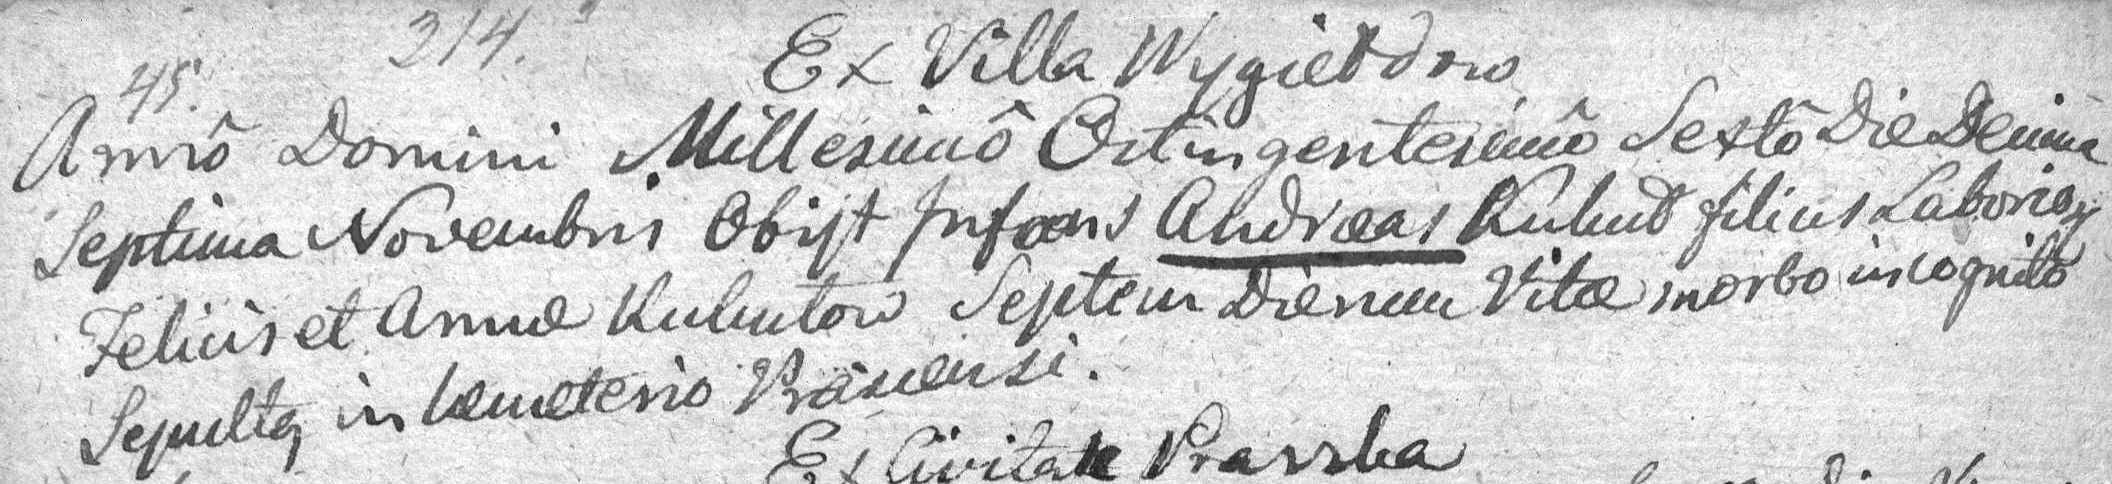 214. Ex Villa Wygiełdow
45.
Annô Domini Millesimô Octingentesimô Sextô Die Decima
Septima Novembris Obijt Infans Andreas Kukuł filius Laborios
Felicis et Annæ Kukułtow Septem Dierum Vitæ morbo incognito
Sepultq in Cæmeterio Prasnensi.
Ex Civitate Praszka